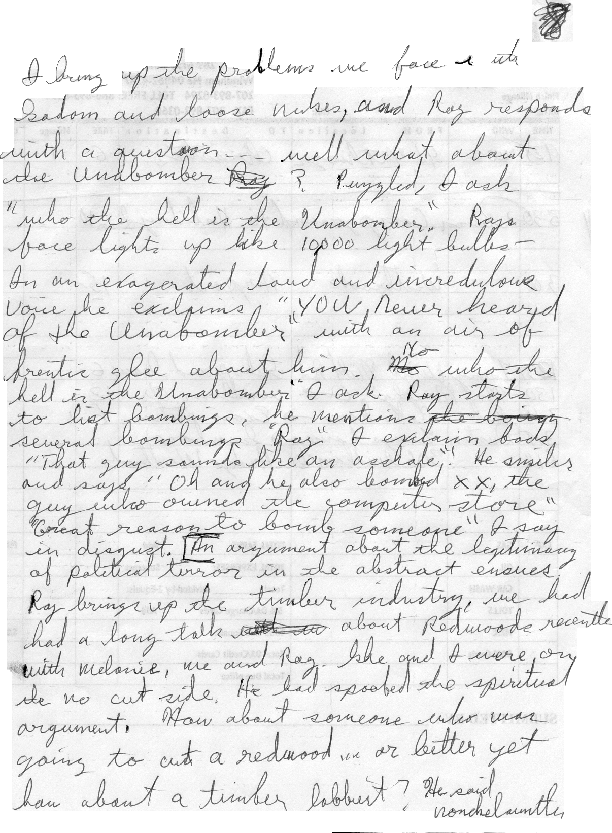 I bring up the problems we face with
Sadom and loose nukes, and Ray responds
with a question --- well what about
the Unabomber Ray ? Puzzled, I ask
"who the hell is the Unabomber." Rays
face lights up like 10,000 light bulbs-
In an exagerated loud and incredulous
voice he exclaims "YOU, Never heard
of the Unabomber" with an air of
frentic glee about him. No who the
hell is the Unabomber" I ask. Ray starts
to list bombings, he mentions the being
several bombings "Ray" I exclaim back
"That guy sounds like an asshole". He smiles
and says "Oh and he also bombed XX, the
guy who owned the computer store"
"Great reason to bomb someone" I say
in disgust. An argument about the legitimacy
of political terror in the abstract ensues
Ray brings up the timber industry, we had
had a long talk about Redwoods recently
with Melanie, me and Ray. She and I were on
the no cut side. He had spoofed the spiritual
argument. How about someone who was
going to cut a redwood... or better yet
how about a timber lobbyist? He said
nonchelauntly